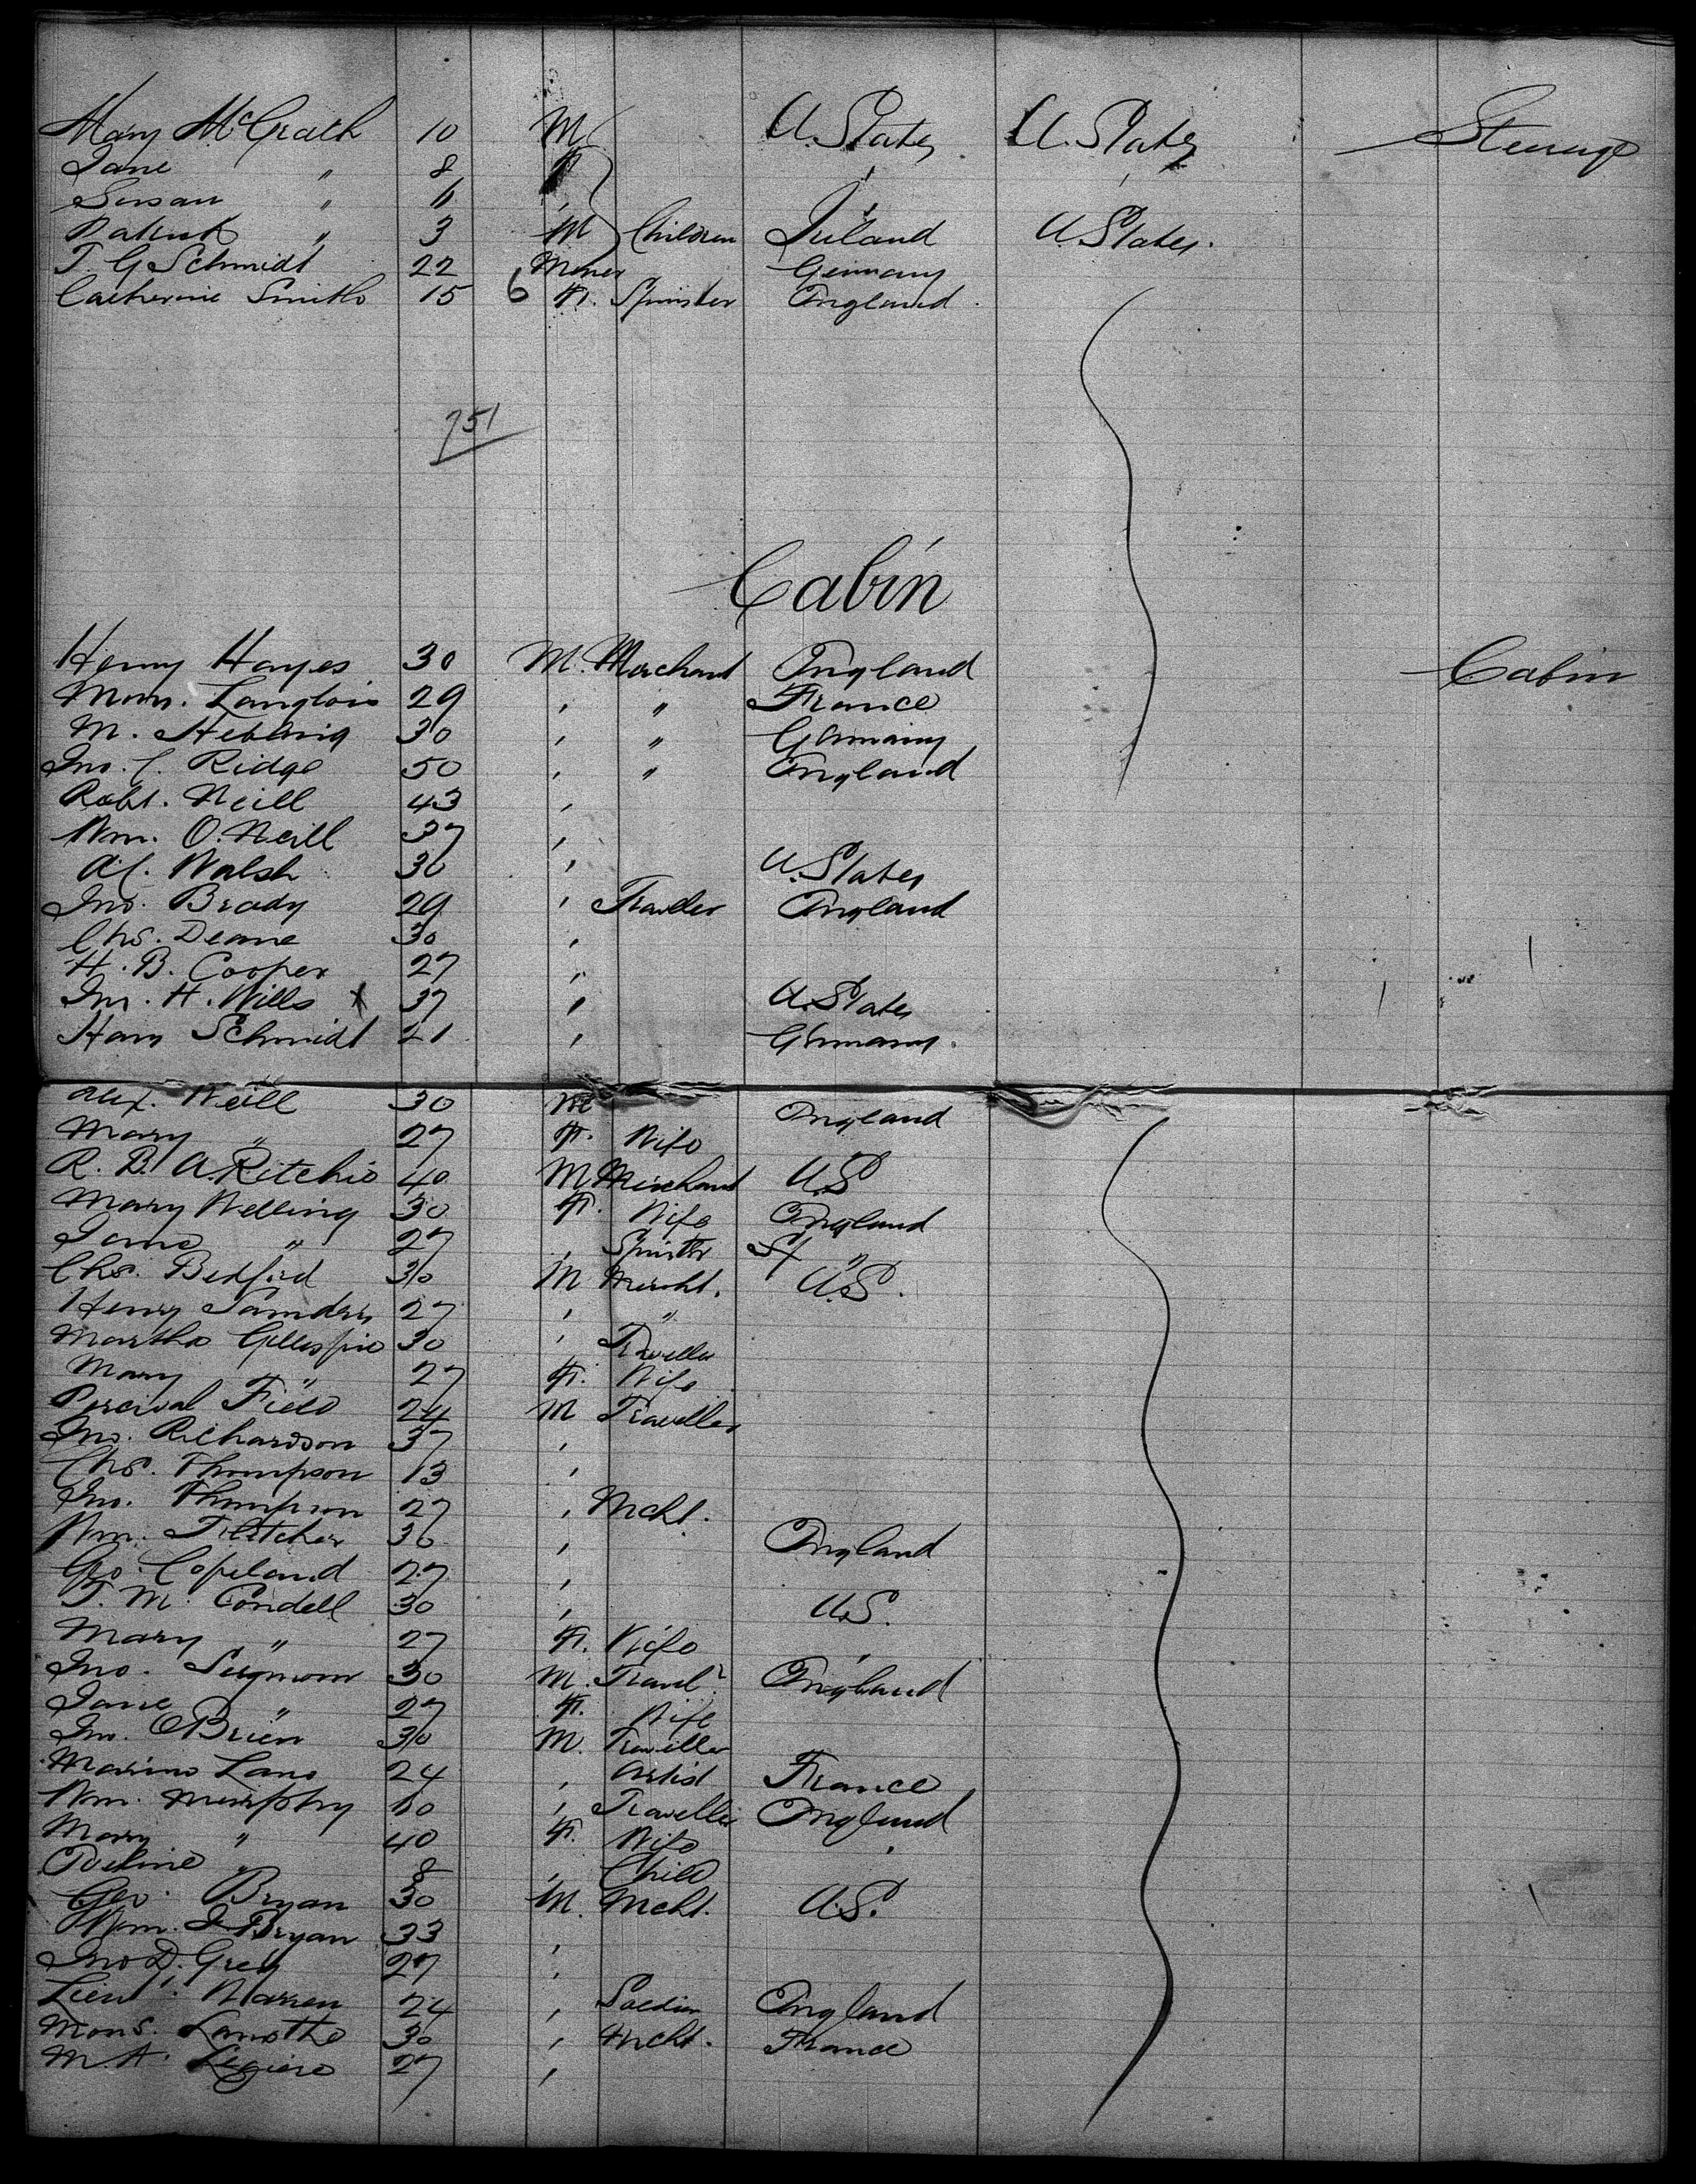 Mary McGrath 10 M U. States U. States Steerage
Jane " 8 F
Susan " 6 "
Patrick " 3 M Children Ireland U. States.
T G Schmidt 22 Miner Germany
Catherine Smith 15 6 F. Spinster England
751
Cabin
Henry Hayes 30 M. Merchant England Cabin
Mons. Langlois 29 " " France
M. Hebbing 30 " " Germany
Jno. C. Ridge 50 " " England
Robt. Neill 43 "
Wm. O.Neill 37 "
Al. Walsh 30 " U. States
Jno. Brady 29 " Traveller England
Chs. Deane 30 "
H. B. Cooper 27 "
Jno. H. Wills x 37 " U. States
Hans Schmidt 21 " Germany.
Alex. Neill 30 M England
Mary " 27 F. Wife
R. B. A. Ritchie 40 M Merchant U.S
Mary Welling 30 F. Wife England
Jane " 27 " Spinster "
Chs. Bedford 30 M Mercht. U.S.
Henry Sanders 27 " "
Martha Gillespie 30 " Traveller
Mary " 27 F. Wife
Percival Field 24 M Traveller
Jno. Richardson 37 "
Chs. Thompson 13 "
Jno. Thompson 27 " Mcht.
Wm. Fletcher 30 " England
Geo. Copeland 27 "
T. M. Condell 30 " U.S.
Mary " 27 F. Wife
Jno. 30 M. Travlr England
Jane " 27 F. Wife
Jno. OBrien 30 M. Traveller
Marino Lano 24 " Artist France
Wm. Murphy 60 " Traveller England
Mary " 40 F. Wife "
" 8 " Child
Geo. Bryan 30 M. Mcht. U.S.
Wm. J Bryan 33 "
Jno D. Grey 27 "
Lieut. Warren 24 " Soldier England
Mons. Lamothe 30 " Mcht. France
M. A. Legiere 27 "